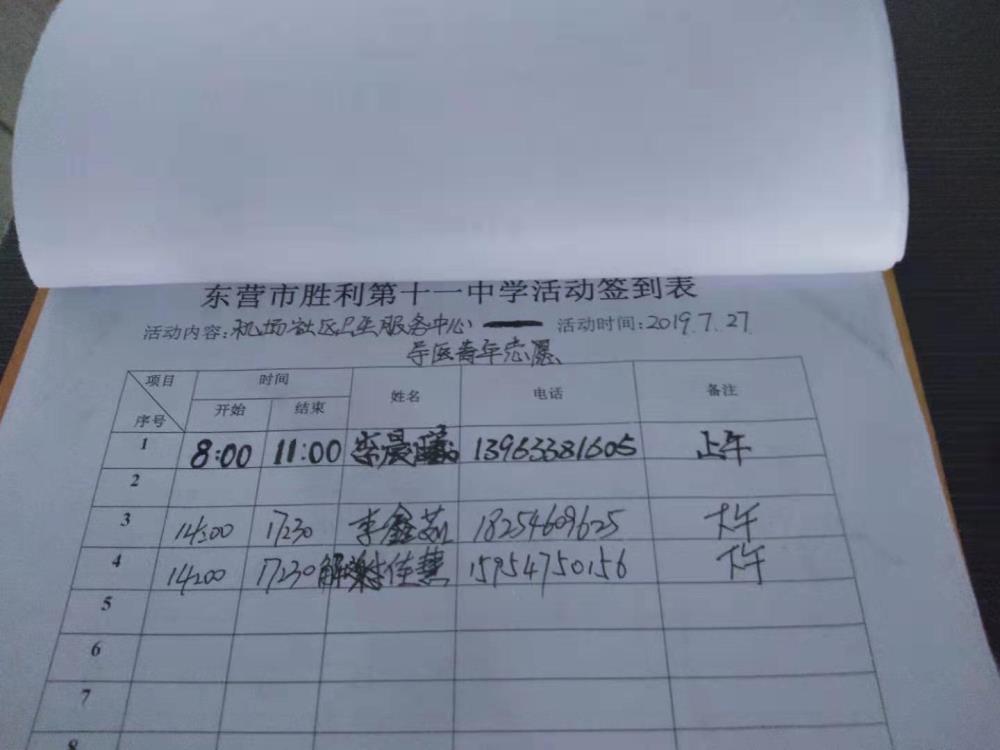 东营市胜利第十一中学活动签到表
活动内容:机场社区卫生服务中心 活动时间:2019.7.27
导医青年志愿
项目 时间 姓名 电话 备注
序号 开始 结束
1 8:00 11:00 李晨 13963381605 上午
2
3 14:00 17:30 李鑫茹 18254609625 下午
4 14:00 17:30 解佳慧 15954750156 下午
5
6
7
8